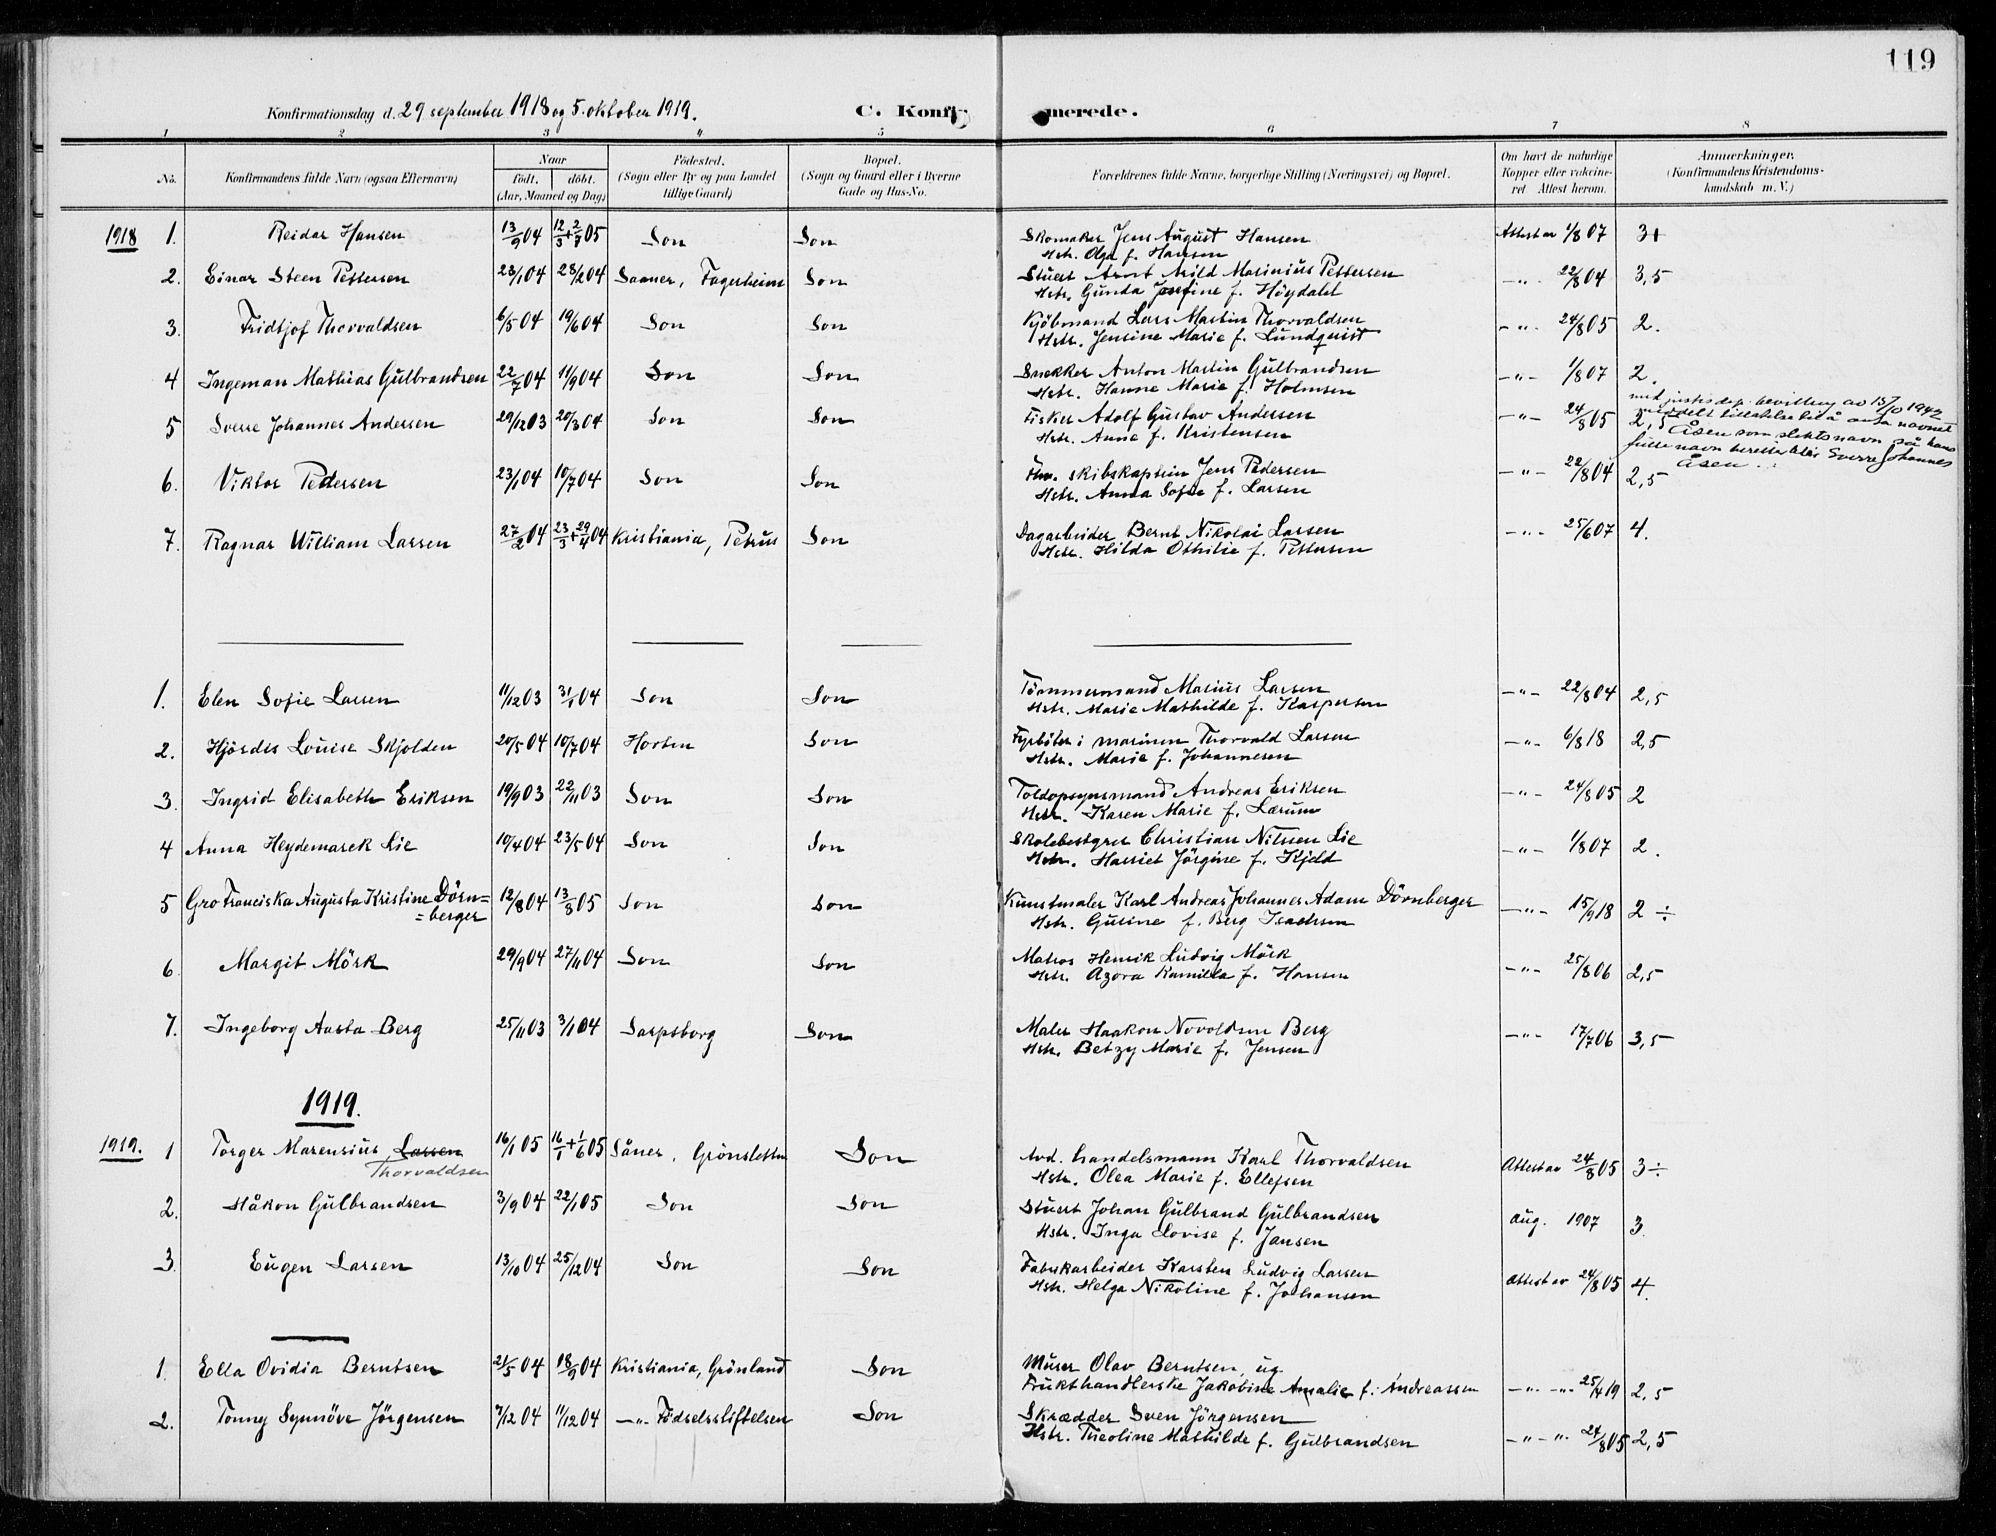 119
Konfirmationsdag d. 29 september 1918 og 5. oktober 1919. C. Konfir merede.
1 2 3 " 5 6 7 8
No. Konfirmandens fulde Navn (ogsaa Efternavn) Naar Fødested. Bopæl. Forældrenes fulde Navne, borgerlige Stilling (Næringsvei) og Bopæl. Om havt de naturlige Anmærkninger.
født. døbt. (Sogn eller By og paa Landet (Sogn og Gaard eller i Byerne Kopper eller vaccine- (Konfirmandens Kristendoms-
(Aar, Maaned og Dag) tillige Gaard) Gade og Hus-No. ret Attest herom. kundskab m. V.)
1918 1. Reidar Hansen 13/9 04 12/3 + 2/7 05 Son Son Skomaker Jens August Hansen Attest av 1/8 07 3+
Hstr. Olga f. Hansen
2. Einar Steen Pettersen 23/1 04 28/2 04 Saaner, Fagerheim Son Stuert Arnt Arild Marinius Pettersen -"- 22/8 04 3,5
Hstr. Gunda Josefine f. Höydalet
3. Fridtjof Thorvaldsen 6/5 04 19/6 04 Son Son Kjöbmand Lars Martin Thorvaldsen -"- 24/8 05 2.
Hstr. Jensine Marie f. Lundquist
4 Ingeman Mathias Gulbrandsen 22/7 04 11/9 04 Son Son Snekker Anton Martin Gulbrandsen -"- 1/8 07 2.
Hstr. Hanne Marie f. Holmsen
5 Sverre Johannes Andersen 29/12 03 20/3 04 Son Son Fisker Adolf Gustav Andersen -"- 24/8 05 2,5
Hstr. Anne f. Kristensen
med justisdep. bevilling av 15/10 1942
meddelt tillatelse til å anta navnet
Åsen som slektsnavn så hans
fulle navn herefter blir Sverre Johannes
Åsen.
6. Viktor Pedersen 23/1 04 10/7 04 Son Son Fhv. skibskaptein Jens Pedersen -"- 22/8 04 2,5
Hstr. Anna Sofie f. Larsen
7. Ragnar William Larsen 27/2 04 23/3 + 29/4 04 Kristiania, Petrus Son Dagarbeider Bernt Nikolai Larsen -"- 25/6 07 4.
Hstr. Hilda Othilie f. Pettersen
1. Elen Sofie Larsen 11/12 03 31/1 04 Son Son Tömmermand Marius Larsen -"- 22/8 04 2,5
Hstr. Marie Mathilde f. Kaspersen
2. Hjördis Louise Skjolden 20/5 04 10/7 04 Horten Son Fyrböter i marinen Thorvald Larsen -"- 6/8 18 2,5
Hstr. Marie f. Johannesen
3. Ingrid Elisabeth Eriksen 19/9 03 22/11 03 Son Son Toldopsynsmand Andreas Eriksen -"- 24/8 05 2
Hstr. Karen Marie f. Lærum
4 Anna Heydemarck Lie 10/4 04 23/5 04 Son Son Skolebestyrer Christian Nilsen Lie -"- 1/8 07 2.
Hstr. Harriet Jörgine f. Kjedd
5 Gro Franciska Augusta Kristine Dörn= 12/8 04 13/8 05 Son Son Kunstmaler Karl Andreas Johannes Adam Dörnberger -"- 15/9 18 2 ÷
=berger Hstr. Gusine f. Berg Isachsen
6. Margit Mörk 29/9 04 27/11 04 Son Son Matros Henrik Ludvig Mörk -"- 25/8 06 2,5
Hstr. Azora Kamilla f. Hansen
7. Ingeborg Aasta Berg 25/11 03 3/1 04 Sarpsborg Son Maler Haakon Novoldsen Berg -"- 17/7 06 3,5
Hstr. Betzy Marie f. Jensen
1919.
1919. 1 Torger Marensius Larsen 16/1 05 16/1 + 1/6 05 Såner, Grönsletta Son Avd. handelsmann Karl Thorvaldsen Attest av 24/8 05 3÷
Thorvaldsen Hstr. Olea Marie f. Ellefsen
2. Håkon Gulbrandsen 3/9 04 22/1 05 Son Son Stuert Johan Gulbrand Gulbrandsen Aug. 1907 3.
Hstr. Inga Lovise f. Jansen
3. Eugen Larsen 13/10 04 25/12 04 Son Son Fabrikarbeider Karsten Ludvig Larsen Attest av 24/8 05 4.
Hstr. Helga Nikoline f. Johansen
1. Ella Ovidia Berntsen 21/5 04 18/9 04 Kristiania, Grönland Son Murer Olav Berntsen, ug.
Frukthandlerske Jakobine Amalie f. Andreassen -"- -"- 25/4 19 2,5
2. Tonny Synnöve Jörgensen 7/12 04 11/12 04 -"- Födselsstiftelsen Son Skrædder Sven Jörgensen
Hstr. Theoline Mathilde f. Gulbrandsen -"- -"- 24/8 05 2,5